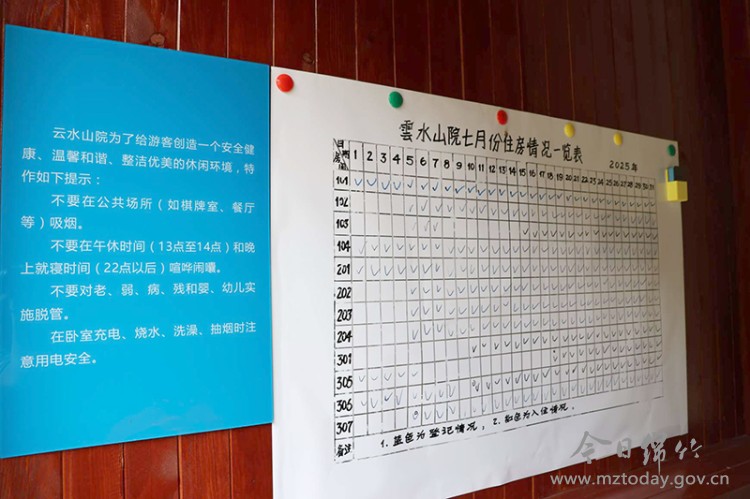 云水山院为了给游客创造一个安全健
康、温馨和谐、整洁优美的休闲环境，特
作如下提示：
不要在公共场所（如棋牌室、餐厅
等）吸烟。
不要在午休时间（13点至14点）和晚
上就寝时间（22点以后）喧哗闹嚷。
不要对老、弱、病、残和婴、幼儿实
施脱管。
在卧室充电、烧水、洗澡、抽烟时注
意用电安全。
雲水山院七月份住房情况一览表
2025年
1 2 3 4 5 6 7 8 9 10 11 12 13 14 15 16 17 18 19 20 21 22 23 24 25 26 27 28 29 30 31
101
102
103
104
201
202
203
204
301
305
306
307
备注
1、蓝色为登记情况；2、和色为入住情况。
今日绵竹
www.mztoday.gov.cn